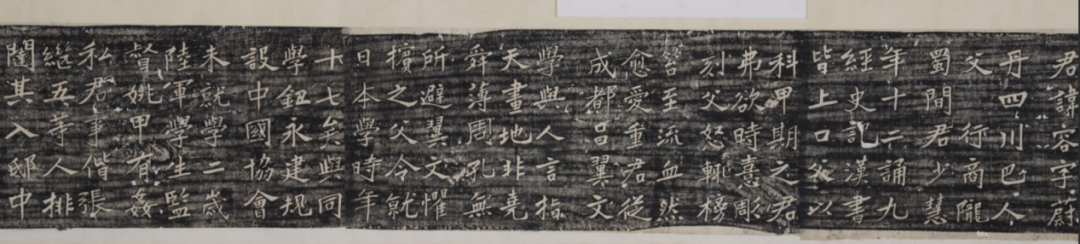 君諱容字蔚
丹四川巴人
父行商隴
蜀間君少慧
年十二誦九
經史記漢書
皆上口父以
科甲期之君
弗欲時憙彫
刻父怒輒榜
笞至流血然
愈愛重君從
成都呂翼文
學與人言指
天畫地非堯
舜薄周孔無
所避翼文懼
擯之父令就
日本學時年
十七矣與同
學鈕永建規
設中國協會
未就學二歲
陸軍學生監
督姚甲有姦
私君事偕張
繼五等人排
闥其入邸中